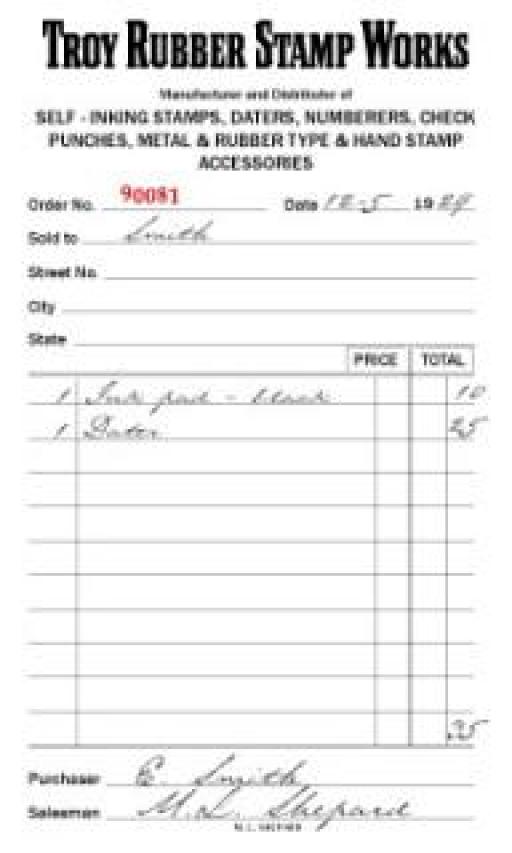 TROY RUBBER STAMP WORKS
Manufacturer and Distributor of
SELF - INKING STAMPS, DATERS, NUMBERERS, CHECK
PUNCHES, METAL & RUBBER TYPE & HAND STAMP
ACCESSORIES
Order No. 90081 Date 12-5 1929
Sold to Smith
Street No.
City
State
PRICE TOTAL
1 Ink pad - black 10
1 Dater 25
35
Purchaser E. Smith
Salesman M.L. Shepard
M. L. SHEPARD